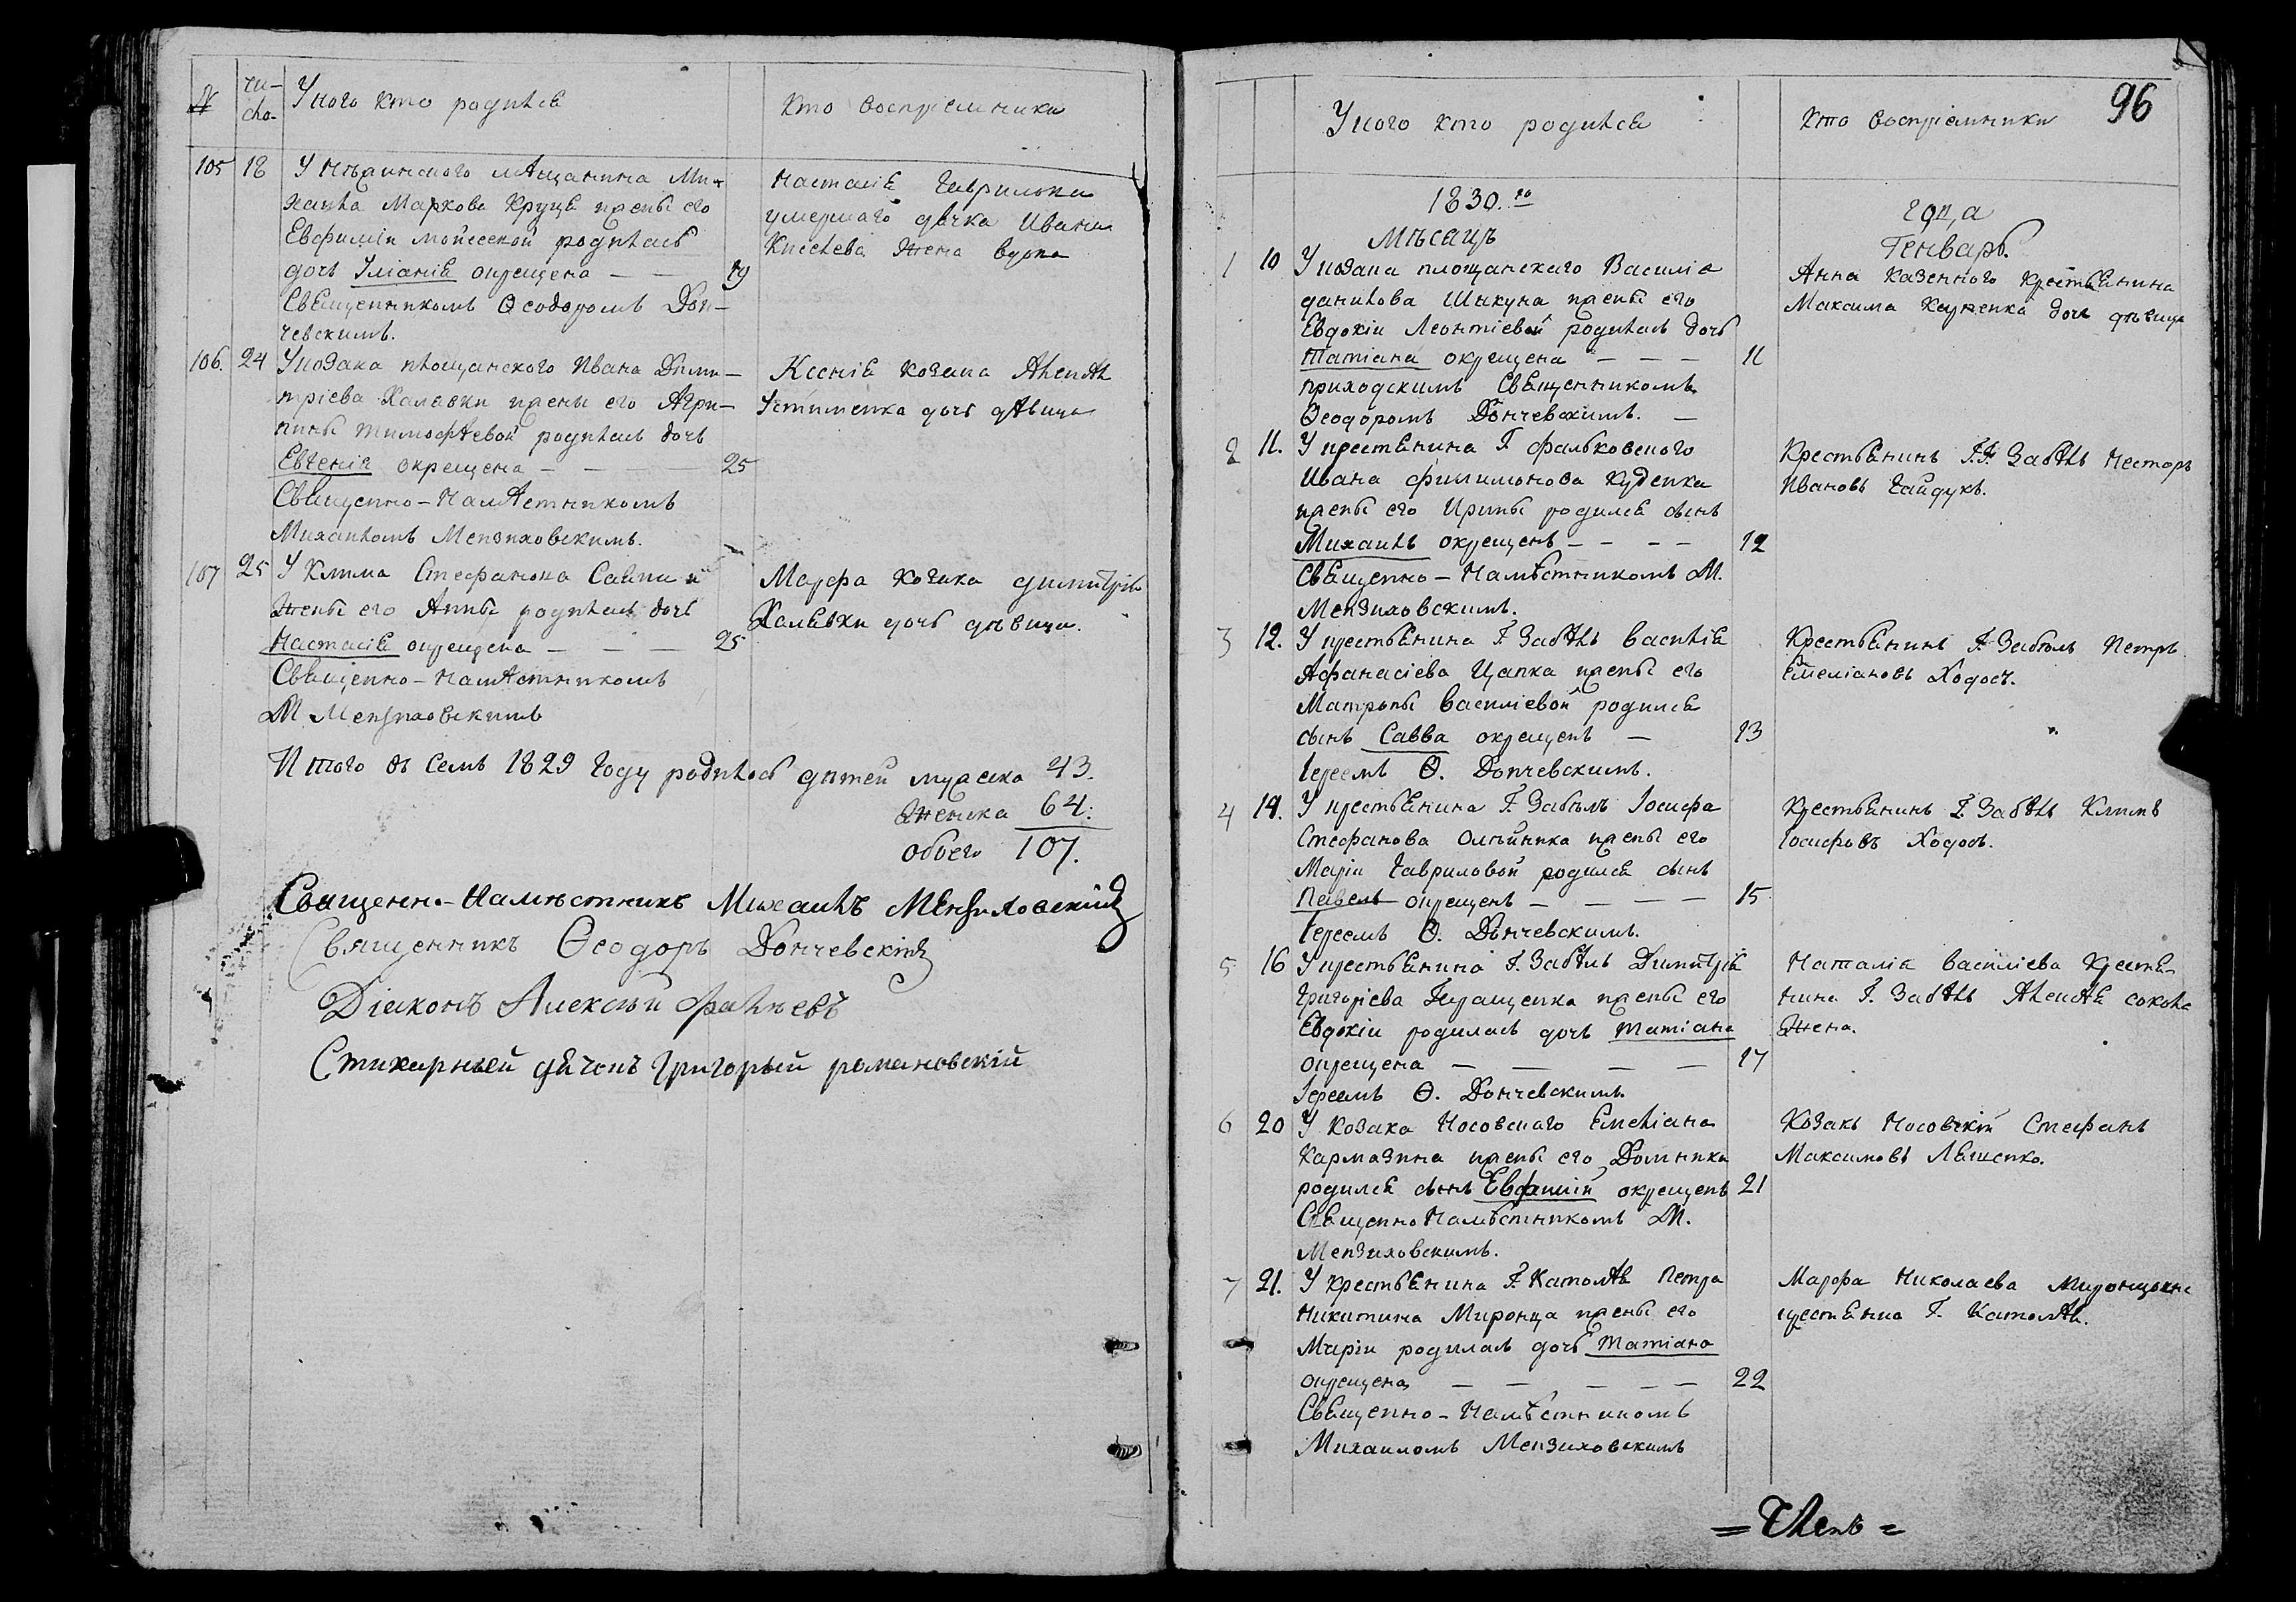 № чи-
сло.
У кого кто родился
Кто воспріемники
105 18 У Нѣжинского мѣщанина Ми-
хаила Маркова Круця жены его
Евфиміи Мойсеевой родилась
дочь Уліанія окрещена — — 19
Священникомъ Ѳеодоромъ Дон-
чевскимъ.
Настасія Гаврилова
умершаго дячка Ивана
Киселева жена вдова
106. 24 У козака площанского Ивана Дими-
тріева Халявки жены его Агри-
пины Тимофѣевой родилась дочь
Евгенія окрещена — — — 25
Священно-Намѣстникомъ
Михаиломъ Мензиховскимъ.
Ксенія козака Алексѣя
Устименка дочь дѣвица
107 25 У Клима Стефанова Савти и
жены его Анны родилась дочь
Настасія окрещена — — — 25
Священно-Намѣстникомъ
М. Мензиховскимъ
Марфа козака Димитрія
Халявки дочь дѣвица.
Итого въ семъ 1829 году родилось дѣтей мужеска 43.
Женска 64.
обоего 107.
Священно-Намѣстникъ Михаилъ Мензиховскій
Священникъ Ѳеодоръ Дончевскій
Діаконъ Алексѣй Фалѣевъ
Стихарный дячокъ Григорый Романовскій
96
У кого кто родился
Кто воспріемники
1830.го года
Мѣсяцъ Генварь.
1 10 У козака площанскаго Василія
Данилова Шикуна жены его
Евдокіи Леонтіевой родилась дочь
Татіана окрещена — — — 11
приходскимъ Священникомъ
Ѳеодоромъ Дончевскимъ. —
Анна казенного крестьянина
Максима Карпенка дочь дѣвица
2 11. У крестьянина Г. Фальковского
Ивана Филимонова Куденка
жены его Ирины родился сынъ
Михаилъ окрещенъ — — — — 12
Священно-Намѣстникомъ М.
Мензиховскимъ.
Крестьянинъ Г. Г. Забѣлъ Несторъ
Ивановъ Гайдукъ.
3 12. У крестьянина Г. Забѣлъ Василія
Афанасіева Цапка жены его
Матроны Василіевой родился
сынъ Савва окрещенъ — 13
Іереемъ Ѳ. Дончевскимъ.
Крестьянинъ Г. Забѣлъ Петръ
Емеліановъ Ходосъ.
4 14. У крестьянина Г. Забѣлъ Іосифа
Стефанова Олѣйника жены его
Маріи Гавриловой родился сынъ
Павелъ окрещенъ — — — — 15
Іереемъ Ѳ. Дончевскимъ.
Крестьянинъ Г. Забѣлъ Климъ
Іосифовъ Ходосъ.
5 16 У крестьянина Г. Забѣлъ Димитрія
Григоріева жены его
Евдокіи родилась дочь Татіана
окрещена — — — — 17
Іереемъ Ѳ. Дончевскимъ.
Наталія Василіева крестя-
нина Г. Забѣлъ Алексѣя Сокола
Жена.
6 20 У Козака Носовскаго Емеліана
Кармазина жены его Домники
родился сынъ Евфимій окрещенъ 21
Священно Намѣстникомъ М.
Мензиховскимъ.
Козакъ Носовскій Стефанъ
Максимовъ Ляшенко.
7 21. У крестьянина Г. Катомѣя Петра
Никитина Миронца жены его
Маріи родилась дочь Татіана
окрещена — — — — — 22
Священно-Намѣстникомъ
Михаиломъ Мензиховскимъ
Марфа Николаева
крестянка Г. Катомѣя.
= Членъ =